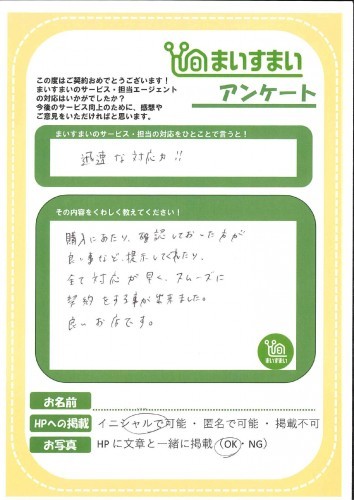 まいすまい
アンケート
この度はご契約おめでとうございます!
まいすまいのサービス・担当エージェント
の対応はいかがでしたか?
今後のサービス向上のために、感想や
ご意見をいただければと思います。
まいすまいのサービス・担当の対応をひとことで言うと!
迅速な対応力!!
その内容をくわしく教えてください!
購入にあたり、確認しておいた方が
良い事など、提示してくれたり、
全て対応が早く、スムーズに
契約をする事が出来ました。
良いお店です。
まいすまい
お名前
HPへの掲載 イニシャルで可能・匿名で可能・掲載不可
お写真 HPに文章と一緒に掲載(OK・NG)